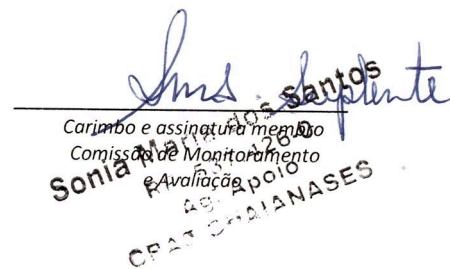 Suplente
Carimbo e assinatura membro
Comissão de Monitoramento
e Avaliação
Sonia Maria dos Santos
Ag. Apoio
GUAIANASES